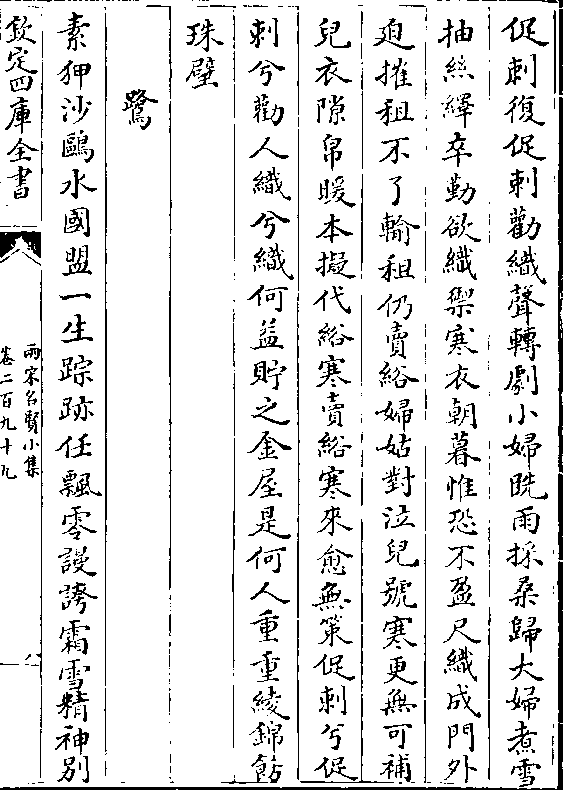 促刺復促刺勸織聲轉劇小婦晩雨採桑歸大婦煮雪
抽絲繹卒勤欲織禦寒衣朝暮惟恐不盈尺織成門外
迫摧租不了輸租仍賣綌婦姑對泣兒號寒更無可補
兒衣隙帛暖本擬代綌寒賣綌寒來愈無策促刺兮促
刺兮勸人織兮織何益貯之金屋是何人重重綾錦飭
珠壁
鷺
素狎沙鷗水國盟一生踪跡任飄零謾誇霜雪精神别
欽定四庫全書
兩宋名賢小集
卷二百九十九
八